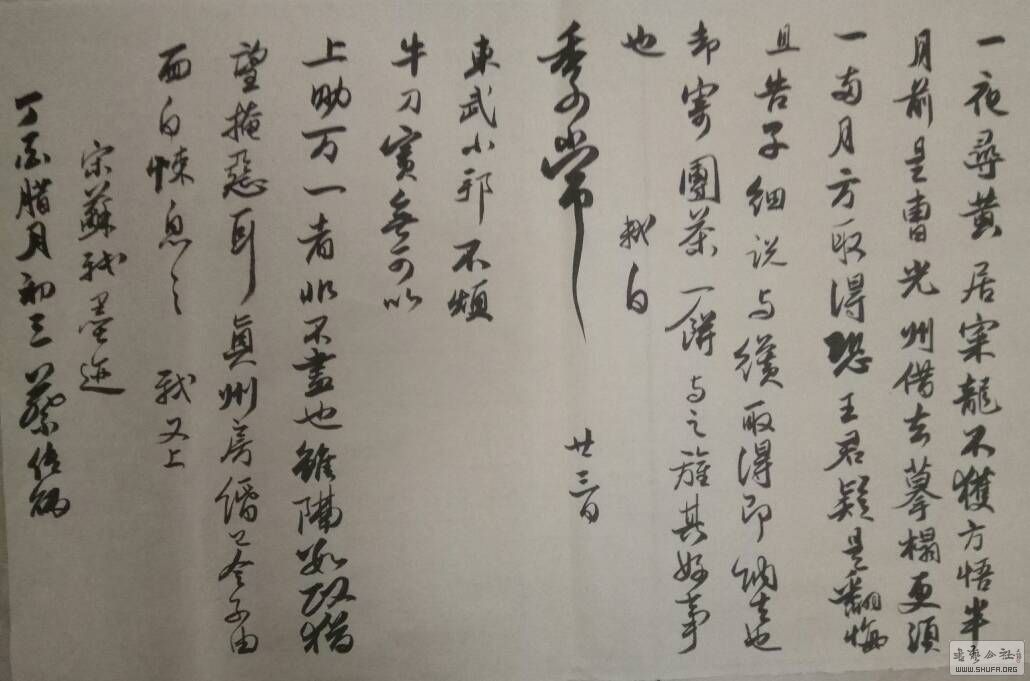 一夜尋黃居寀龍不獲方悟半
月前是曹光州借去摹榻更須
一兩月方取得恐王君疑是翻悔
且告子細說與纔取得即納去也
却寄團茶一餅与之旌其好事
也 軾白
季常 廿三日
東武小邦不煩
牛刀實無可以
上助万一者非不盡也雖隔数政猶
望掩惡耳真州房緡已令子由
面白悚息〻 軾又上
宋蘇軾墨迹
丁酉臘月初三
书艺公社
WWW.SHUFA.ORG